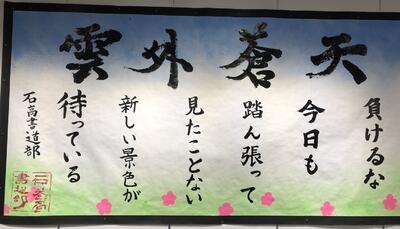 雲外蒼天
負けるな
今日も
踏ん張って
見たことない
新しい景色が
待っている
石高書道部